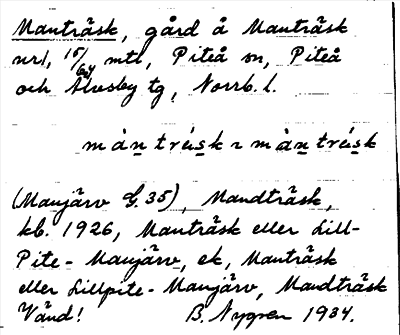 Manträsk, gård å Manträsk
nr1, 15/64 mtl, Piteå sn, Piteå
och Älvsby tg, Norrb. l.
màntrɛ́isk ~ màntrɛ́sk
(Manjärv G. 35), Mandträsk,
kb. 1926, Manträsk eller Lill-
Pite-Manjärv, ek, Manträsk
eller Lillpite-Manjärv, Mandträsk
Vänd! B. Nygren 1934.